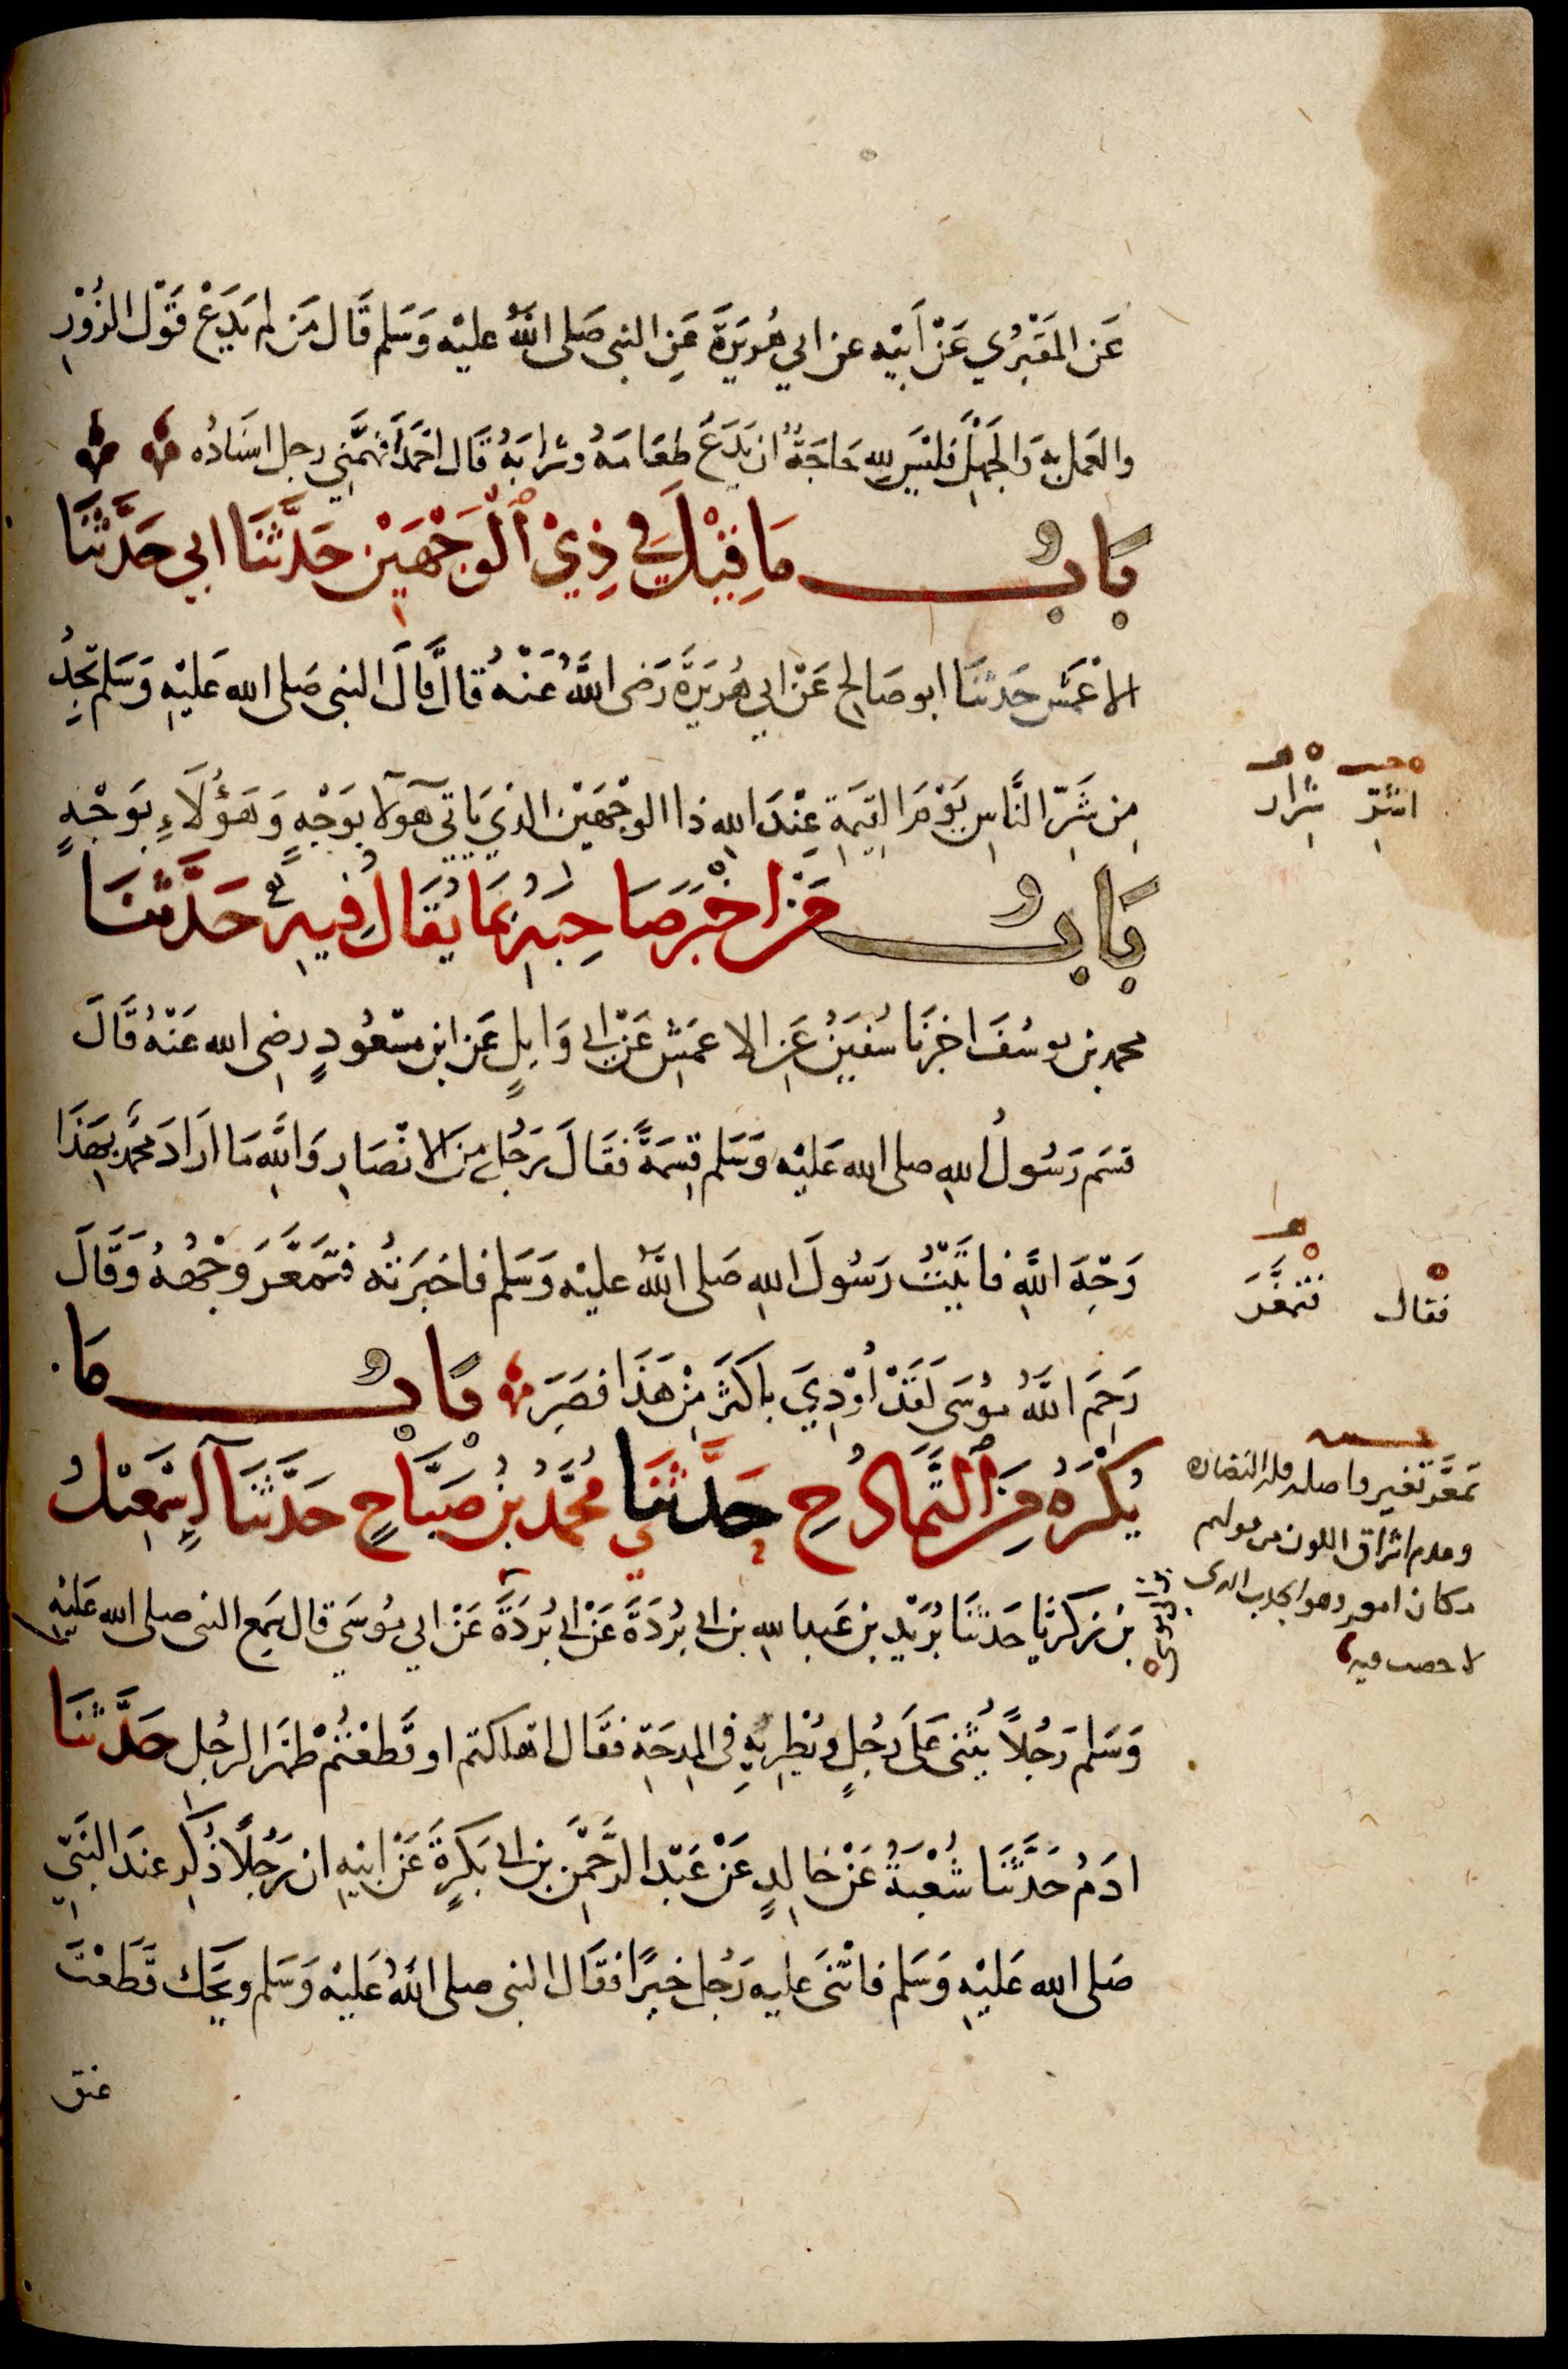 عَن المَقْبُرِي عَنْ اَبِيْه عن ابي هُرَيرَةَ عَنِ النبي صَلى اللهُ عليْه وَسَلم قَال مَن لم يَدَعْ قَوْل الزُوْرِ
والعَمل بِه وَالجَهْلَ فَليْسَ لله حَاجَةٌ ان يَدَعَ طعَامَهُ وشرابَهُ قَال احْمَدُ اَفْهَمَني رجل اسنَادُه
بَابُ مَا قِيْلَ فِي ذِيْ الْوَجْهَيْن حَدَّثَنَا ابي حَدَّثَنَا
الاعْمَش حَدثنَا ابو صَالح عَنْ ابي هُرَيرَة رَضى اللهُ عَنْهُ قالَ قَالَ النبي صَلى الله عَليْهِ وَسَلم تَجِدُ
مِن شَرّ النَّاسِ يَوْمَ القِيمَةِ عِنْدَ اللهِ ذا الوَجْهَيْن الذي يَاتي هَولآ بوَجْهٍ وَهَؤُلَاءِ بوَجْهٍ
بَابُ مَن اخْبَرَ صَاحِبَهُ بِمَا يُقَالُ فِيهِ حَدَّثنَا
محمد بن يوسُفَ اخبرَنَا سُفيَنُ عَنِ الاعمَشِ عَنْ ابي وَايلٍ عَن ابن مسْعُودٍ رضِى الله عَنْهُ قَالَ
قسَم رَسُولُ اللهِ صلى الله عَليْه وَسَلم قِسْمَةً فَقَالَ رَجُل مِن الانْصَارِ وَاللهِ مَا ارَادَ محمدٌ بِهَذَا
وَجْهَ اللهِ فاتَيْتُ رَسُولَ اللهِ صَلى اللهُ عليْه وَسَلم فاخبَرتهُ فتمَعَّرَ وَجْهُهُ وَقَالَ
رَحِمَ اللهُ مُوسَى لَقَدْ أُوْذِيَ باكثَرَ مِنْ هَذَا فصَبَرَ بَابُ مَا
يُكْرَهُ مِنَ التَّمَادُحِ حَدَّثَنَا مُحَمَّدُ بْنُ صَبَّاحٍ حَدَّثَنَا اِسْمَعِيْلُ
بن زكريَّا حَدثنَا بُرَيْد بن عَبد الله بن ابي بُرْدَةَ عَنْ ابي بُرْدَةَ عَنْ ابي مُوسَي قال سَمِع النبي صلى الله عَليْهِ
وَسَلم رَجُلاً يُثْنى عَلَى رَجُلٍ ويُطْرِيهِ فى المِدحَةِ فقَال اهلكتم او قَطعْتُمْ ظَهر الرجُلِ حَدَّثنَا
ادَمُ حَدَّثَنَا شُعْبَةُ عَنْ خَالِدٍ عَنْ عَبْد الرَّحْمَن بن ابي بَكرَةَ عَنْ ابيهِ ان رَجُلاً ذُكِر عندَ النَّبيّ
صَلى الله عَليْهِ وَسَلم فاثنَى عليه رَجُل خيرًا فقَال النبي صلى اللهُ عَليْه وَسَلم ويحَك قَطَعْتَ
عنق
اشرّ شرار
فقال فتمغَّرَ
تمَعَّر تغير واصله قلة النضارة
وعدم اشراق اللون من قولهم
مكان امعر وهو الجدب الذى
لا خصب فيه